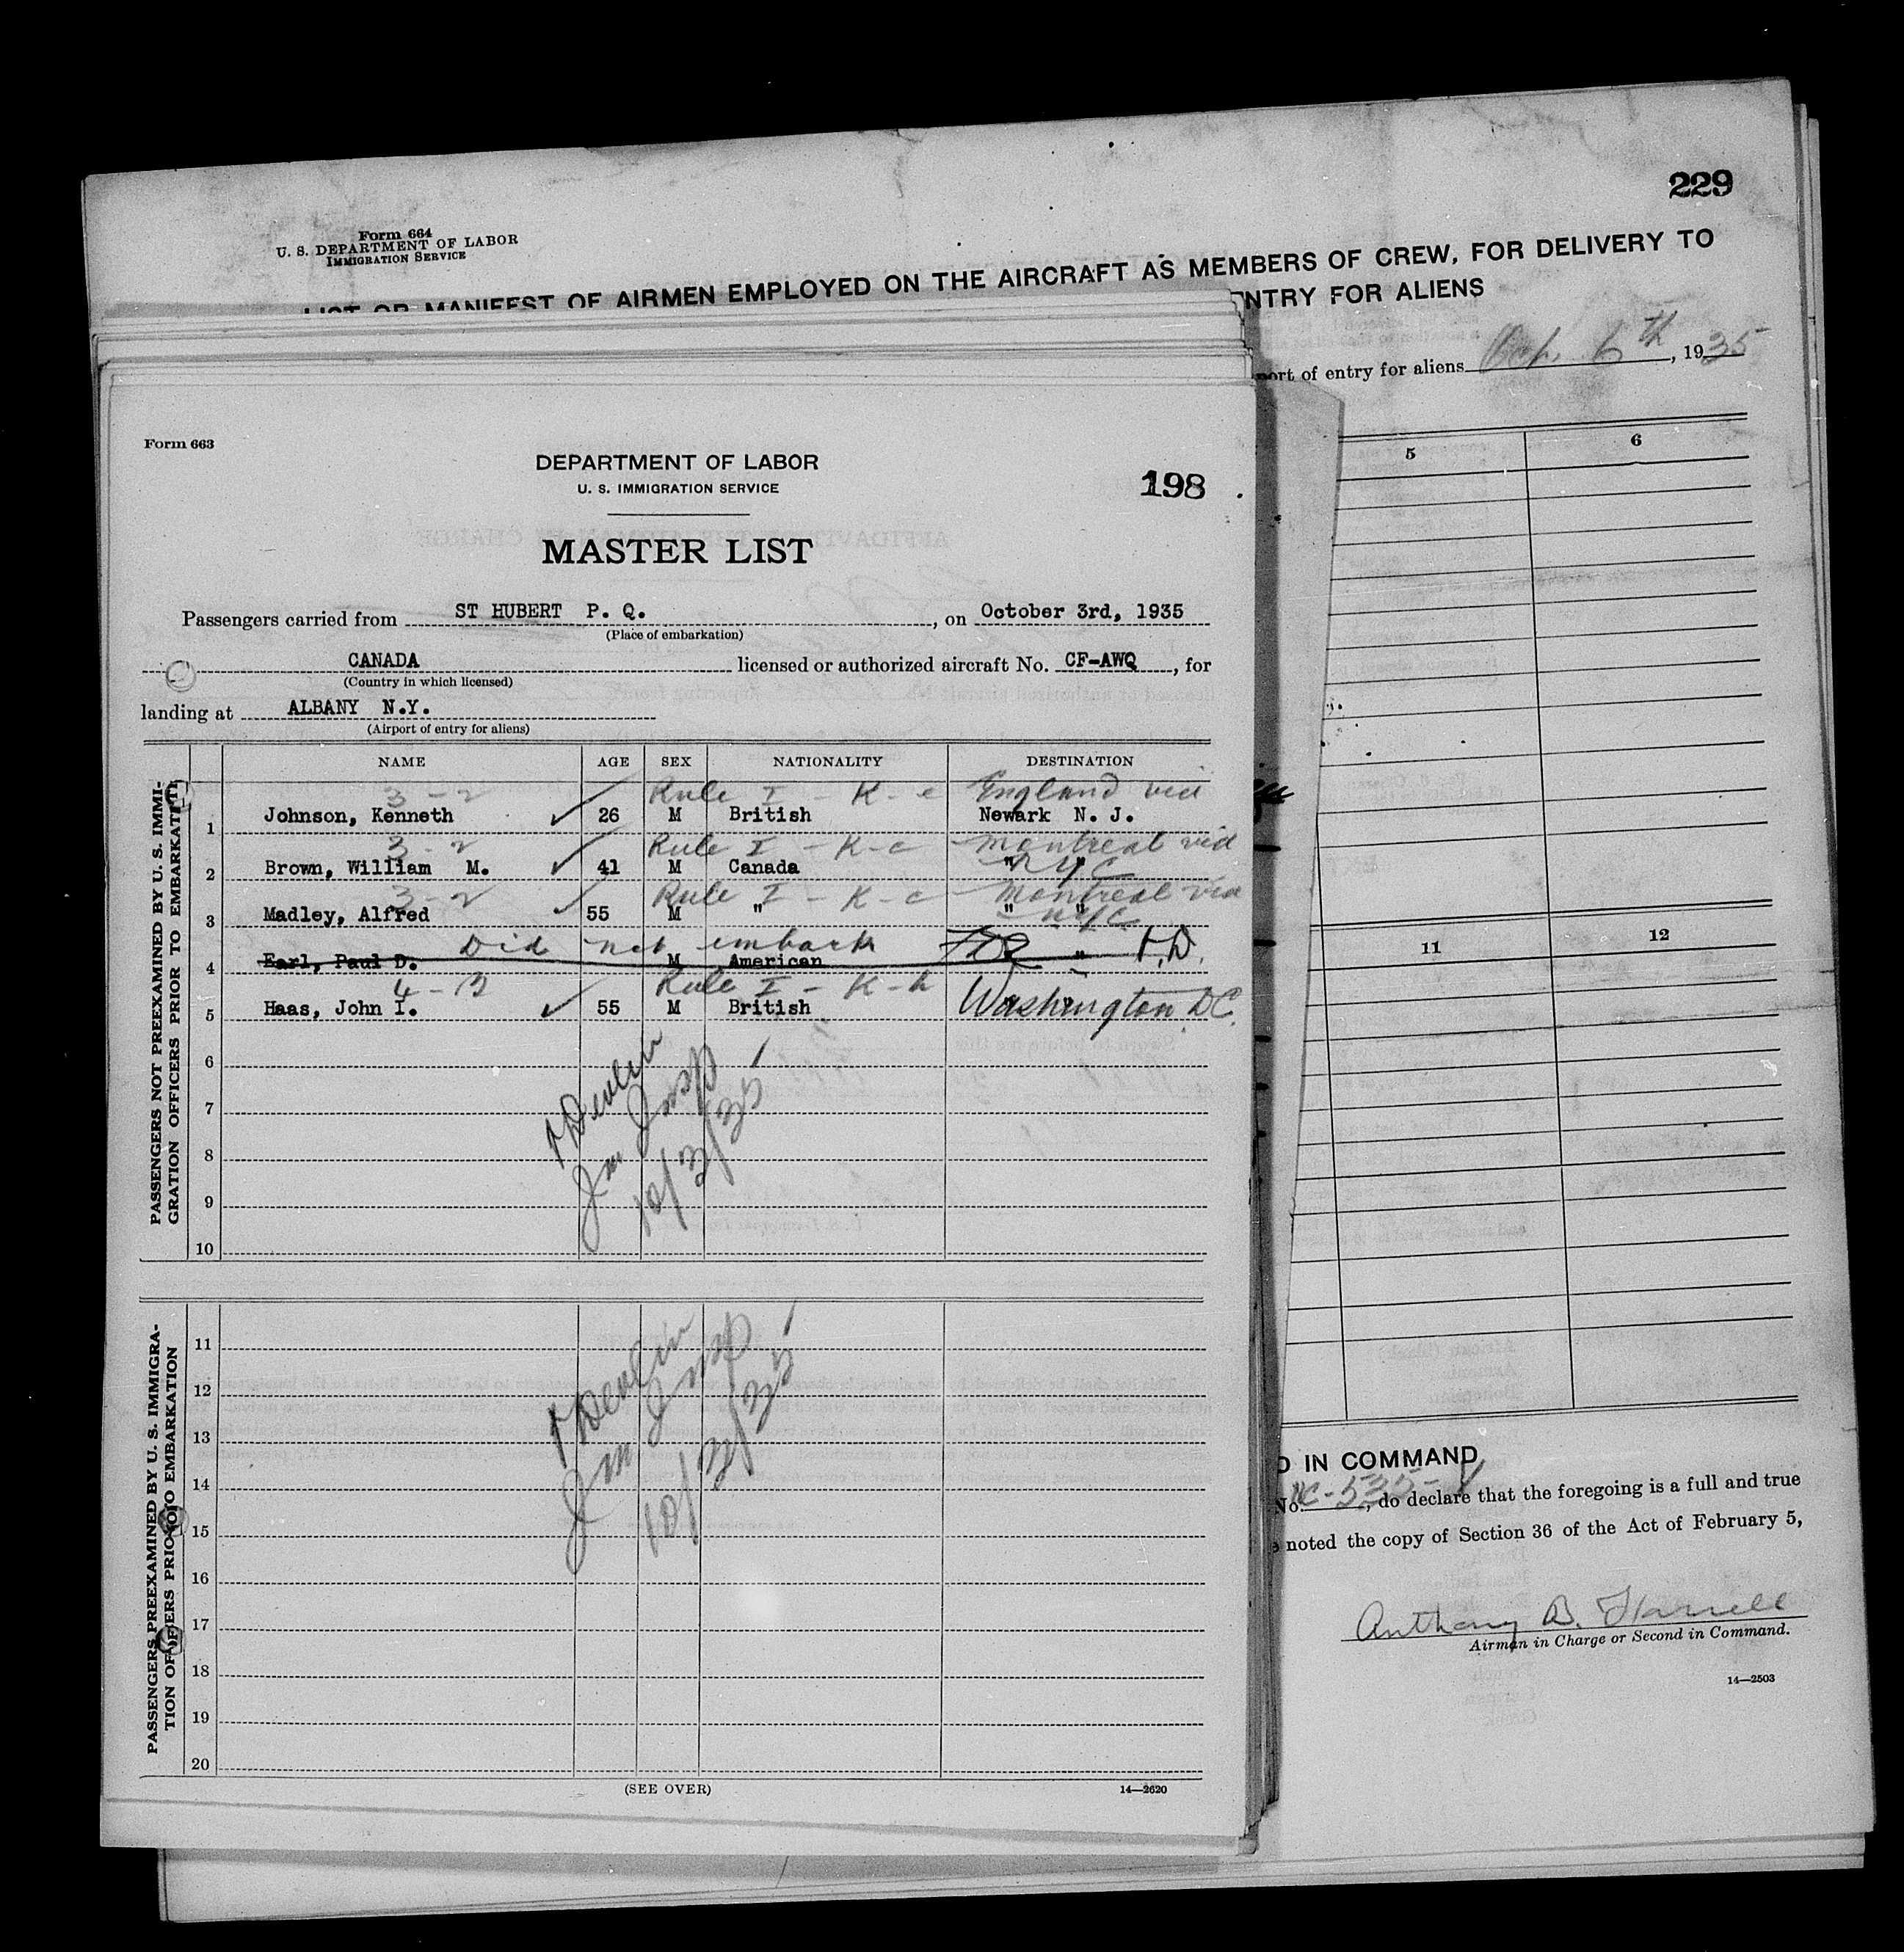 229
Form 664
U. S. DEPARTMENT OF LABOR
IMMIGRATION SERVICE
LIST OR MANIFEST OF AIRMEN EMPLOYED ON THE AIRCRAFT AS MEMBERS OF CREW, FOR DELIVERY TO
ENTRY FOR ALIENS
port of entry for aliens 6th, 1935
5 6
11 12
D IN COMMAND
No. NC-535-V, do declare that the foregoing is a full and true
noted the copy of Section 36 of the Act of February 5,
Anthony B.
Airman in Charge or Second in Command.
14—2503
Form 663
DEPARTMENT OF LABOR
U. S. IMMIGRATION SERVICE
198
MASTER LIST
Passengers carried from ST HUBERT P. Q., on October 3rd, 1935
(Place of embarkation)
CANADA licensed or authorized aircraft No. CF-AWQ, for
(Country in which licensed)
landing at ALBANY N.Y.
(Airport of entry for aliens)
NAME AGE SEX NATIONALITY DESTINATION
PASSENGERS NOT PREEXAMINED BY U. S. IMMI-
GRATION OFFICERS PRIOR TO EMBARKATION
3-2 Rule I - K-c England via
1 Johnson, Kenneth ✓ 26 M British Newark N. J.
3-2 Rule I - K-c Montreal via
2 Brown, William M. ✓ 41 M Canada " " NYC
3-2 Rule I - K-c Montreal via
3 Madley, Alfred ✓ 55 M " " " NYC
Did not embark
4 Earl, Paul D. M American " T.D.
4-12 Rule I - K-h
5 Haas, John I. ✓ 55 M British Washington DC.
6
7
8
9
10
Devlin
Im Insp
10/3/35
PASSENGERS PREEXAMINED BY U. S. IMMIGRA-
TION OFFICERS PRIOR TO EMBARKATION
11
12
13
14
15
16
17
18
19
20
Devlin
Im Insp
10/3/35
(SEE OVER)
14—2620